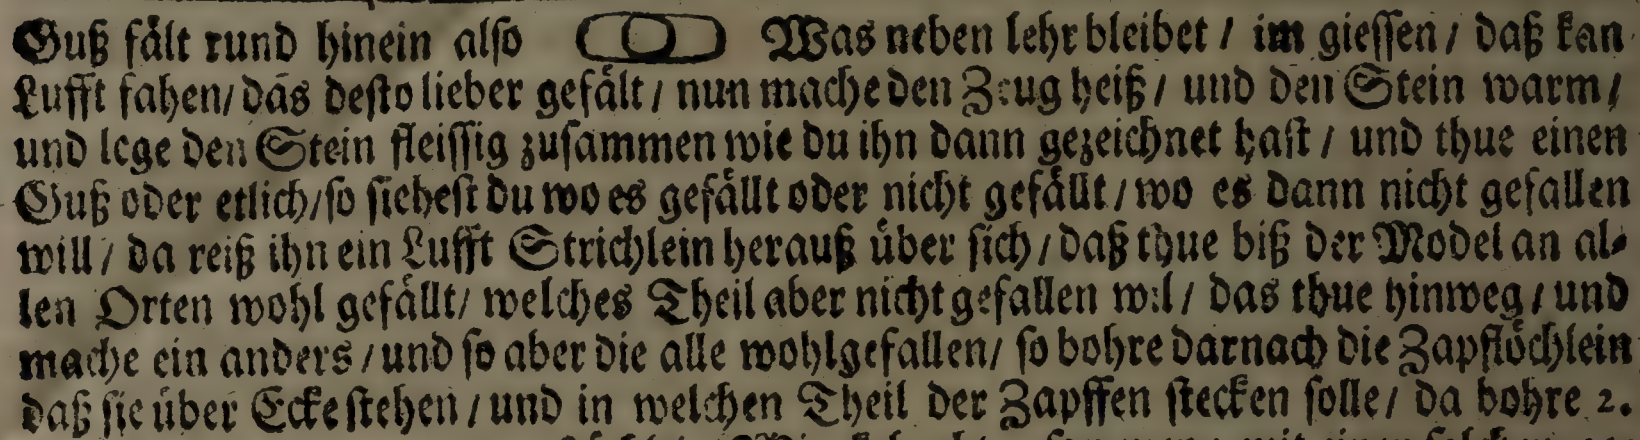 Guß fält rund hinein also Was neben lehr bleibet / im giessen / daß kan
Lufft fahen / das desto lieber gefält / nun mache den Zeug heiß / und den Stein warm /
und lege den Stein fleissig zusammen wie du ihn dann gezeichnet hast / und thue einen
Guß oder etlich / so siehest du wo es gefällt oder nicht gefällt / wo es dann nicht gefallen
will / da reiß ihn ein Lufft Strichlein herauß über sich / daß thue biß der Model an al-
len Orten wohl gefällt / welches Theil aber nicht gefallen wil / das thue hinweg / und
mache ein anders / und so aber die alle wohlgefallen / so bohre darnach die Zapflöchlein
daß sie über Ecke stehen / und in welchen Theil der Zapffen stecken solle / da bohre 2.